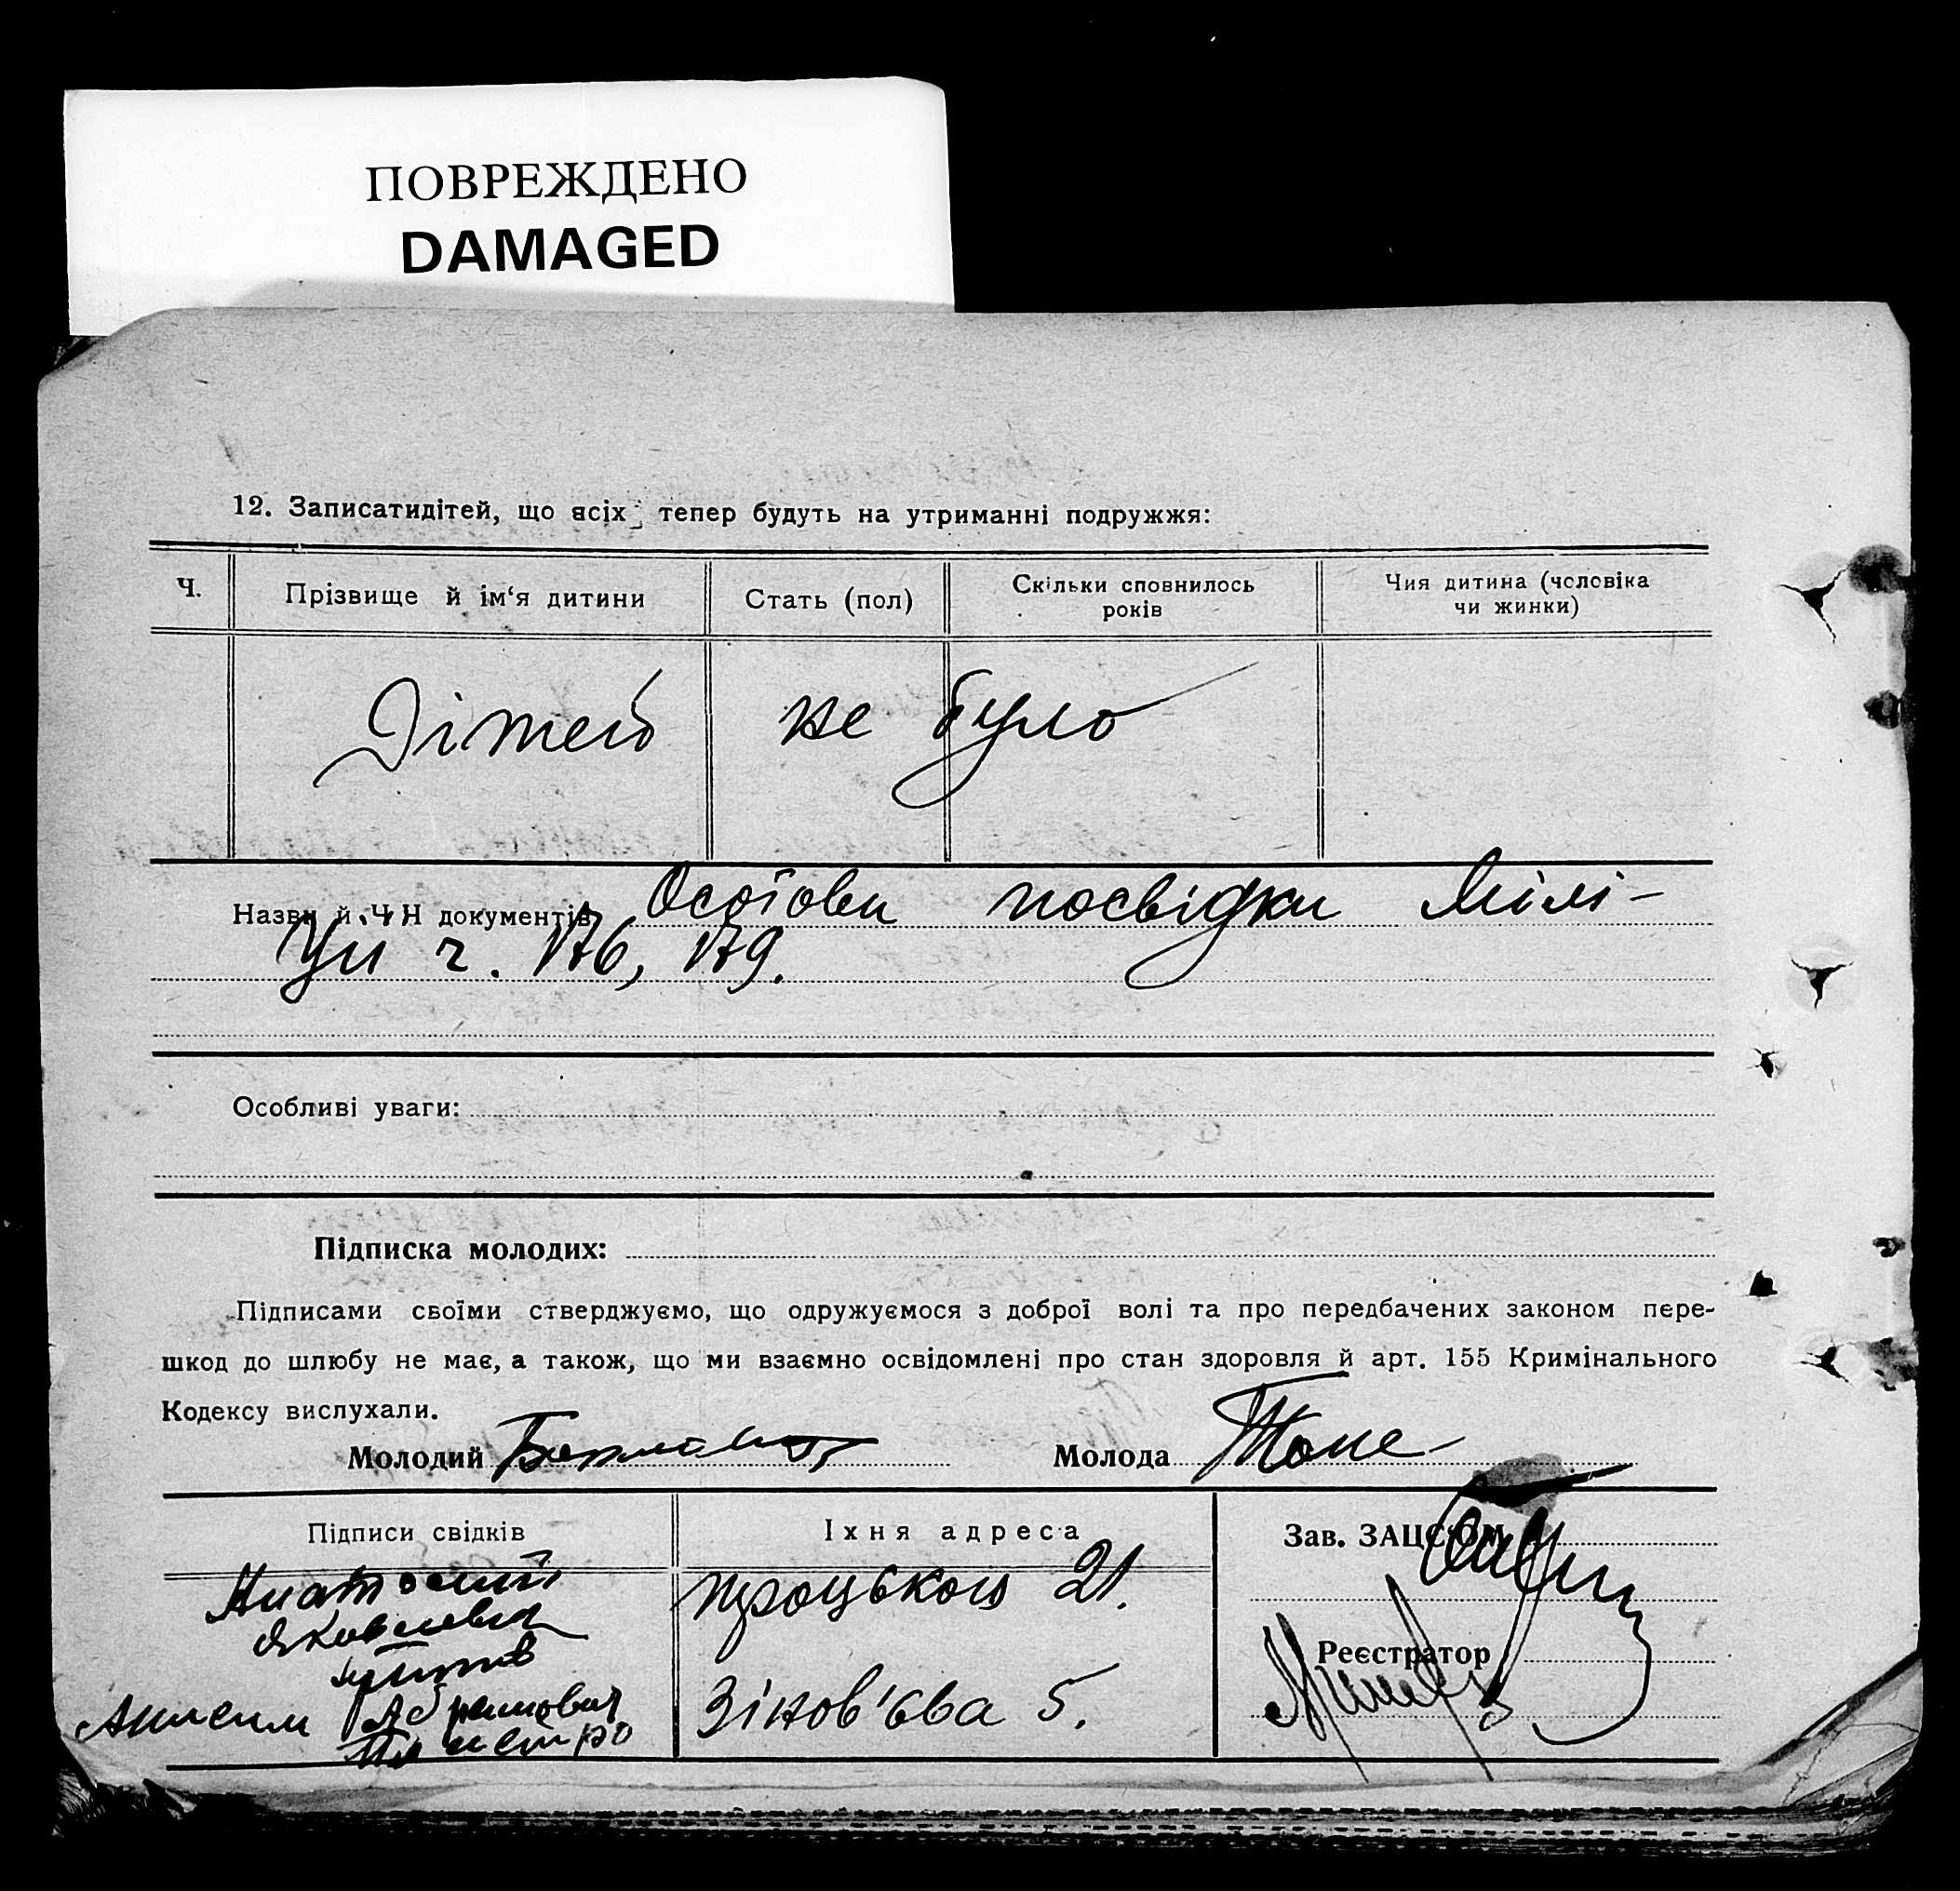 ПОВРЕЖДЕНО
DAMAGED
12. Записатидітей, що всіх тепер будуть на утриманні подружжя:
Ч.
Прізвище й ім‘я дитини
Стать (пол)
Скільки сповнилось
років
Чия дитина (чоловіка
чи жинки)
Дітей не було
Назви й Ч Н документів Особові посвідки Мілі-
ціи ч. 176, 179.
Особливі уваги:
Підписка молодих:
Підписами своїми стверджуємо, що одружуємося з доброї волі та про передбачених законом пере-
шкод до шлюбу не має, а також, що ми взаємно освідомлені про стан здоровля й арт. 155 Кримінального
Кодексу вислухали.
Молодий
Молода
Підписи свідків
Їхня адреса
Зав. ЗАЦСОМ
Яковлевич
троцького 21.
Реєстратор
Абрамович
Зінов'єва 5.